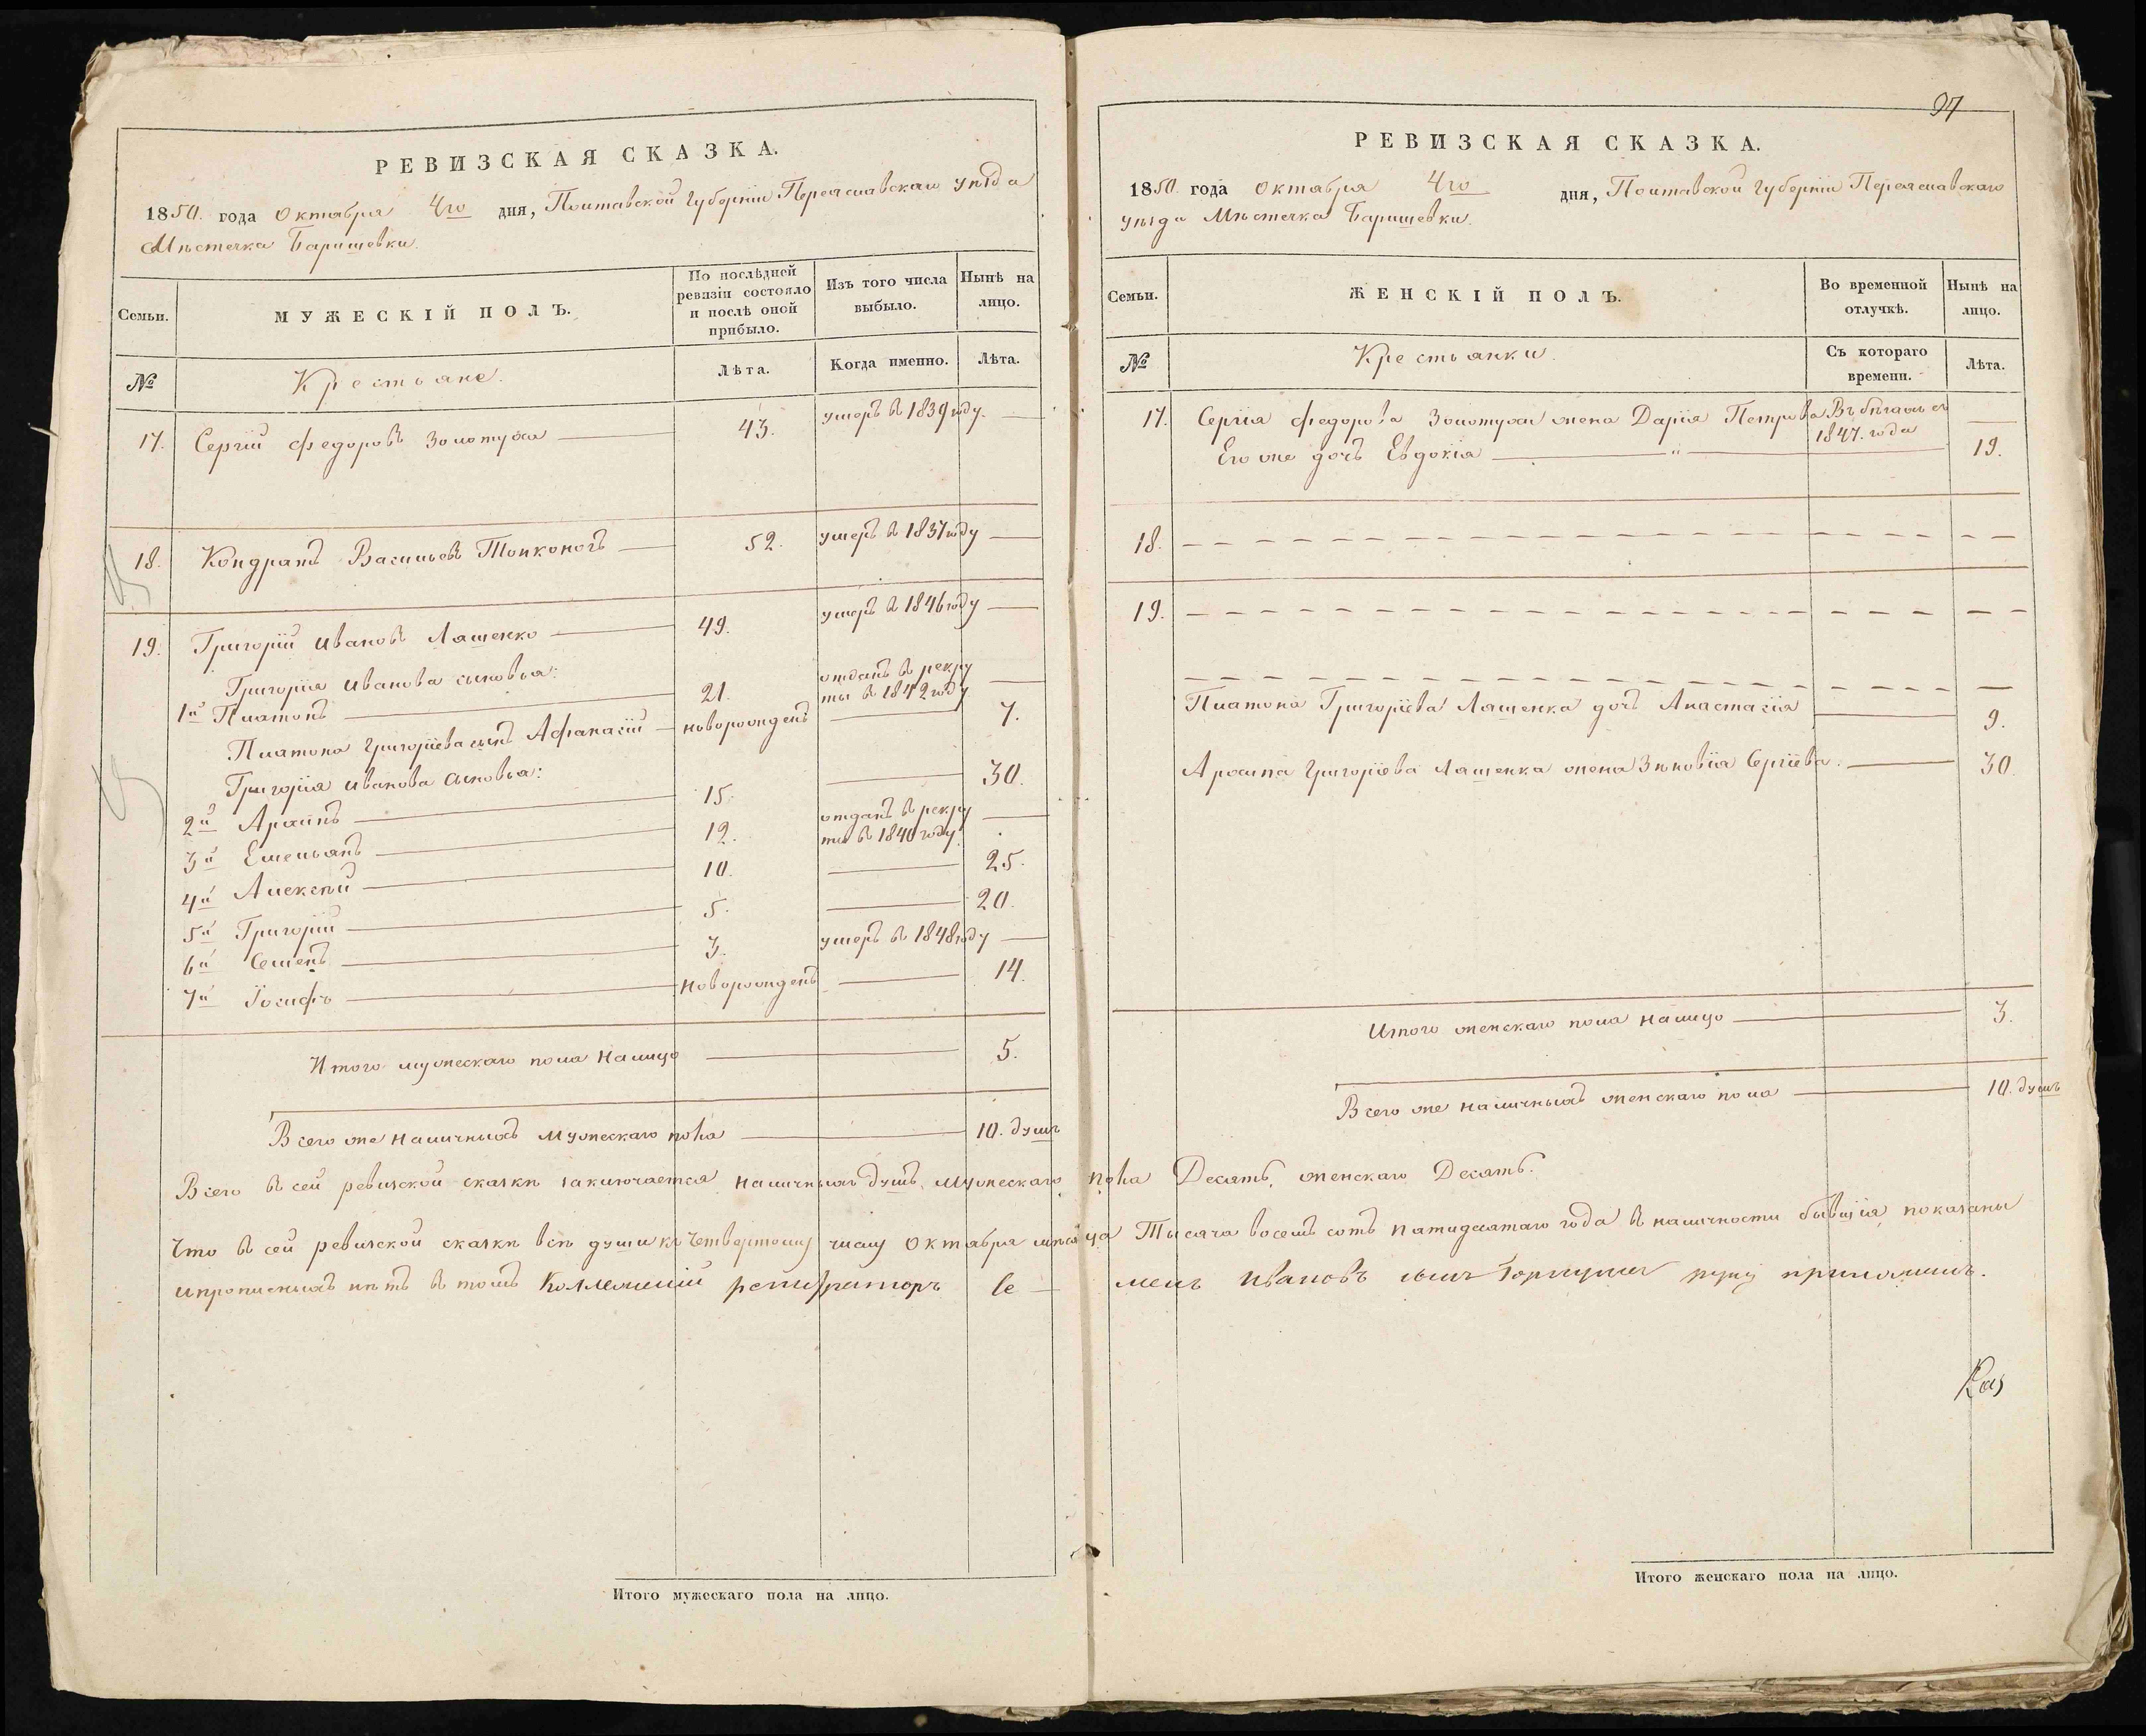 РЕВИЗСКАЯ СКАЗКА.
1850. года Октября 4го дня, Полтавской Губерніи Переяславскаго уѣзда
Мѣстечка Баришевки.
Семьи.
МУЖЕСКІЙ ПОЛЪ.
По послѣдней ревизіи состояло и послѣ оной прибыло.
Изъ того числа выбыло.
Нынѣ на лицо.
№
Крестьяне.
Лѣта.
Когда именно.
Лѣта.
17. Сергій Федоровъ Золотуха 43. умеръ въ 1839 году.
18. Кондратъ Васильевъ Тонконогъ 52. умеръ въ 1837 году
19. Григорій Ивановъ Ляшенко 49. умеръ въ 1846 году
Григорія Иванова сыновья:
1й Платонъ 21. отданъ въ рекру
ты въ 1842 году
Платона Григоріева сынъ Афанасій новорожденъ 7.
Григорія Иванова сыновья:
2й Архипъ 15. 30.
3й Емельянъ 12. отданъ въ рекру
ты въ 1840 году.
4й Алексѣй 10. 25.
5й Григорій 5. 20.
6й Семенъ 3. умеръ въ 1848 году
7й Іосифъ новорожденъ 14.
Итого мужескаго пола налицо 5.
Всего же наличныхъ мужескаго пола 10. душъ
Итого мужескаго пола на лицо.
97
РЕВИЗСКАЯ СКАЗКА.
1850. года Октября 4го дня, Полтавской Губерніи Переяславскаго
уѣзда Мѣстечка Баришевки.
Семьи.
ЖЕНСКІЙ ПОЛЪ.
Во временной отлучкѣ.
Нынѣ на лицо.
№
Крестьянки.
Съ котораго времени.
Лѣта.
17. Сергія Федорова Золотухи жена Дарія Петрова Въ бѣгахъ съ
1847. года
Его же дочь Евдокія " 19.
18.
19.
Платона Григоріева Ляшенка дочь Анастасія 9.
Архипа Григоріева Ляшенка жена Зѣновія Сергіева. 30.
Итого женскаго пола налицо 3.
Всего же наличныхъ женскаго пола 10. душъ
Всего въ сей ревизской сказкѣ заключается наличныхъ душъ мужескаго пола Десять, женскаго Десять.
Что въ сей ревизской сказкѣ всѣ души къ четвертому числу Октября мѣсяца Тысяча восемь сотъ пятидесятаго года въ наличности бывшія показаны
и прописныхъ нѣтъ въ томъ Коллежскій регистраторъ Се — менъ Ивановъ сынъ руку приложилъ.
Итого женскаго пола на лицо.